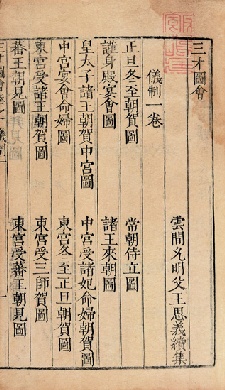 三才圖會
雲間允明父王思義續集
儀制一卷
正旦冬至朝賀圖 常朝侍立圖
謹身殿宴會圖 諸王來朝圖
皇太子諸王朝賀中宮圖 中宮受諸妃命婦朝賀圖
中宮宴會命婦圖 東宮冬至正旦朝賀圖
東宮受諸王朝賀圖 東宮受三師賀圖
蕃王朝見圖 東宮受蕃王朝見圖